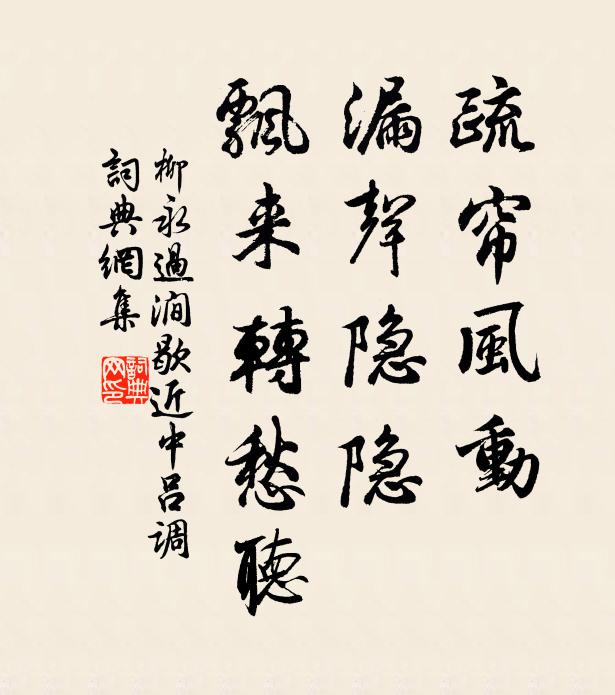 疏帘風動
漏聲隐隐
飄来轉愁聽
柳永過澗歇近中吕调
詞典網集
詞典
网印